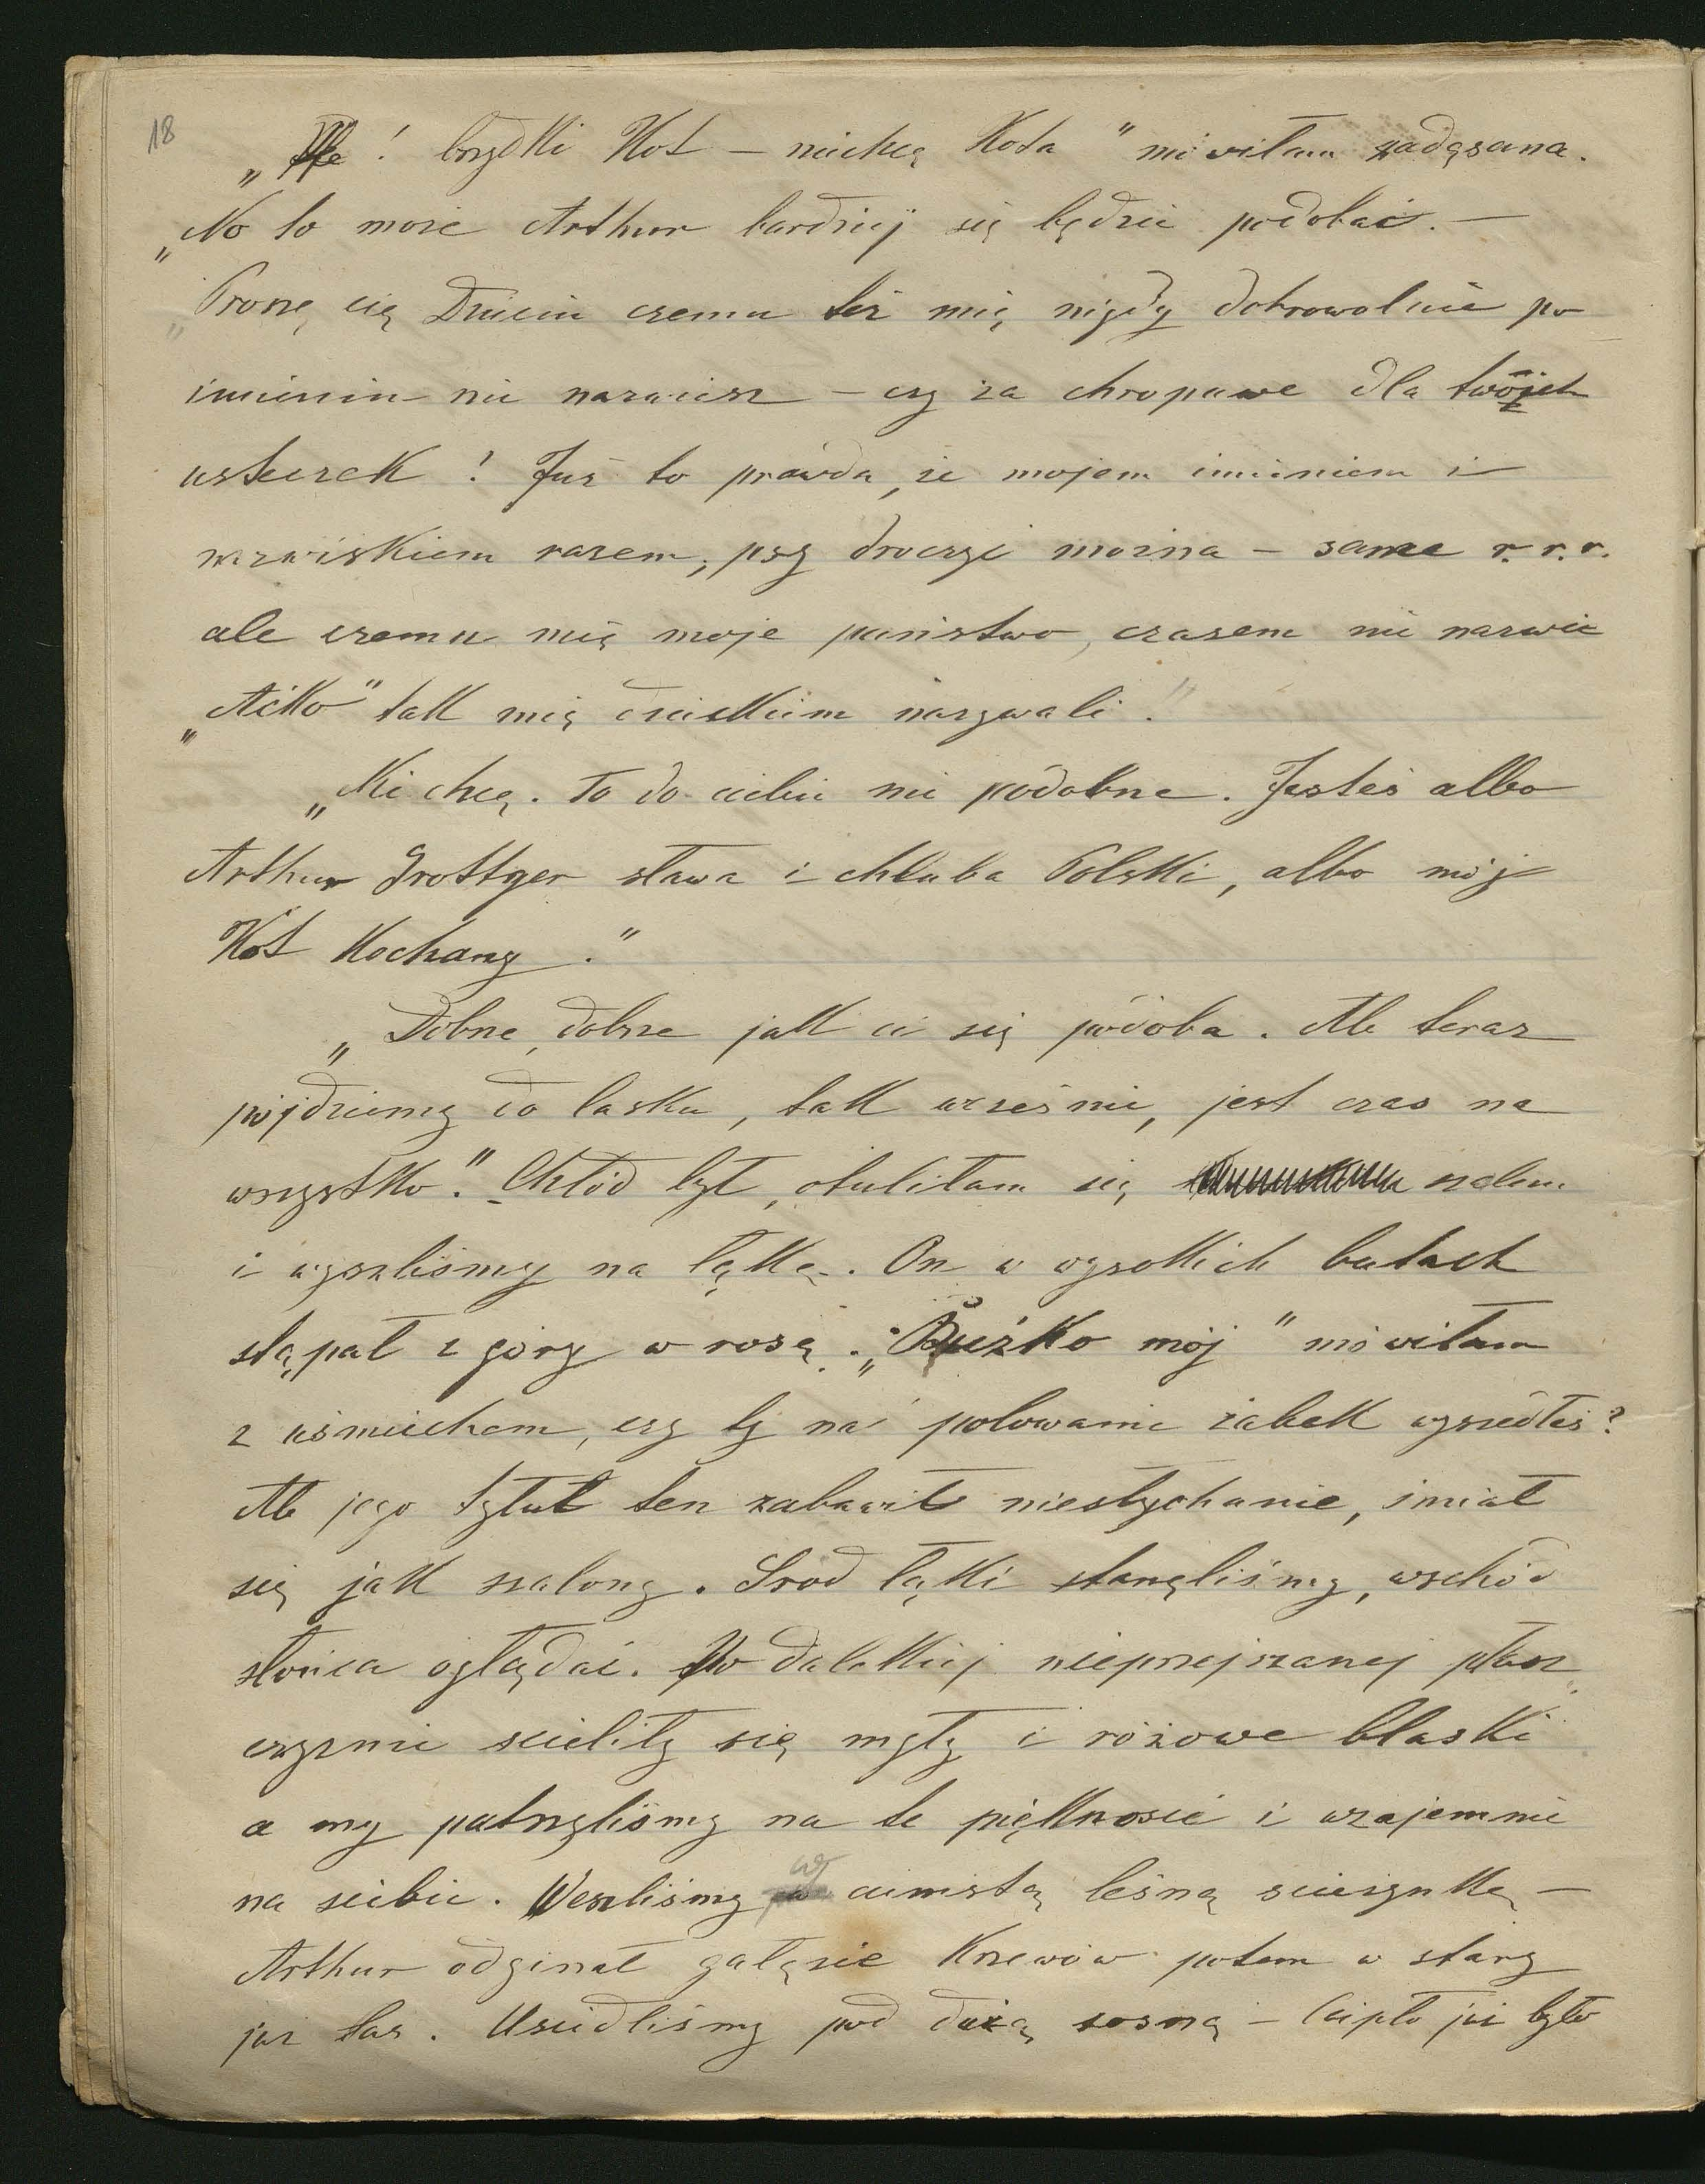 18
„Ffe! brzydki Kot – niechcę Kota" mówiłam zadąsana.
„No to może Arthur bardziej się będzie podobać. —
„Proszę cię Dziecię czemu też mię nigdy dobrowolnie po
imieniu nie nazwiesz – czy za chropawe dla twoich
usteczek! Już to prawda, że mojem imieniem i
nazwiskiem razem, psy droczyć można – same r.r.r.
ale czemu mię moje państwo, czasem nie nazwie
„Aćko" tak mię dzieckiem nazywali!"
„Nie chcę. To do ciebie nie podobne. Jesteś albo
Arthur Grottger sława i chluba Polski, albo mój
Kot Kochany."
„Dobrze, dobrze jak ci się podoba. Ale teraz
pójdziemy do lasku, tak wcześnie, jest czas na
wszystko." Chłód był, otuliłam się szalem
i wyszliśmy na łąkę. On w wysokich butach
stąpał z góry w rosę. „Buźko mój" mówiłam
z uśmiechem, czy ty na polowanie żabek wyszedłeś?
Ale jego tytuł ten zabawił niesłychanie, śmiał
się jak szalony. Sród łąki stanęliśmy, wschód
słońca oglądać. Po dalekiej nieprzejrzanej płasz
czyznie scieliły się mgły i różowe blaski
a my patrzyliśmy na te piękności i wzajemnie
na siebie. Weszliśmy w cienistą leśną scieżynkę —
Arthur odginał gałęzie Krzewów potem w stary
już las. Usiedliśmy pod dużą sosną – Ciepło już było